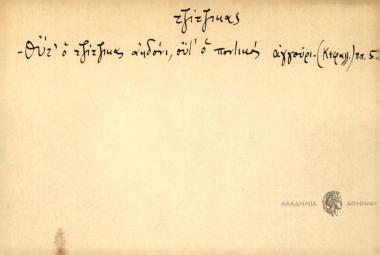 τζίτζικας
-Οὔτ' ὁ τζίτζικας ἀηδόνι, οὔτ' ὁ ποντικός ἀγγούρι-(Κεφαλλ.) ππ. 5
ΑΚΑΔΗΜΙΑ ΑΘΗΝΩΝ